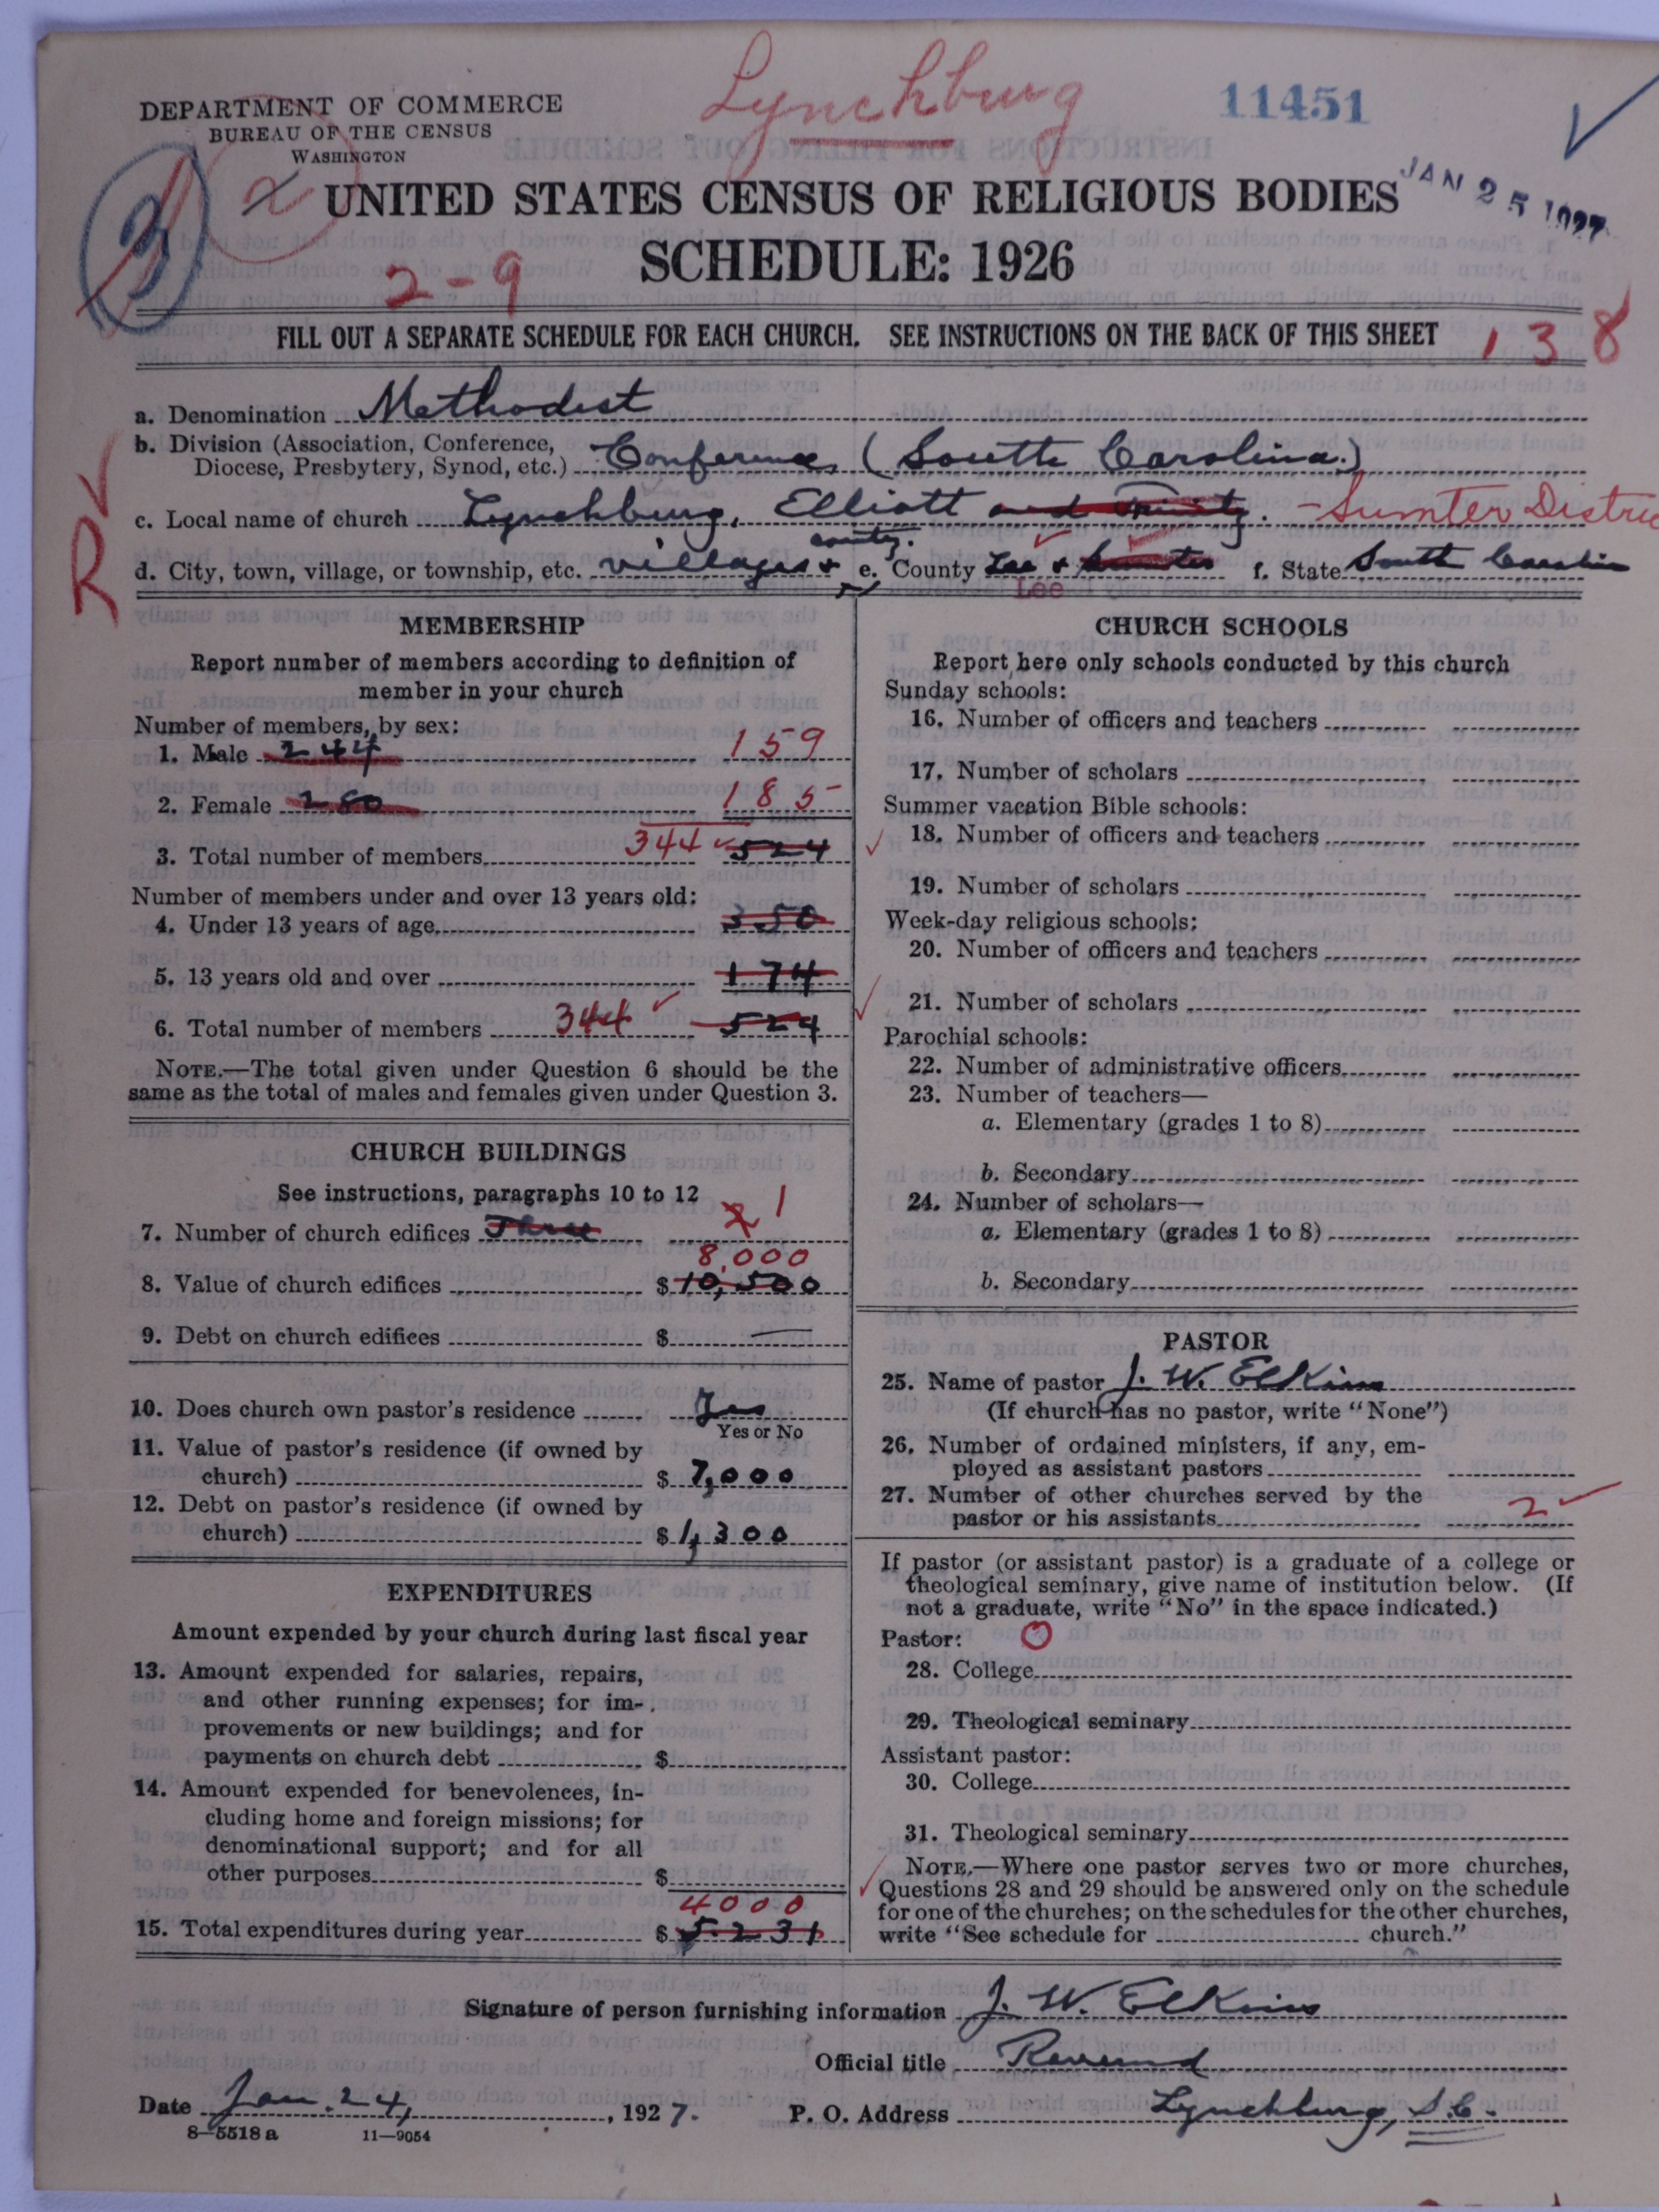 Lynchburg
11451
DEPARTMENT OF COMMERCE
BUREAU OF THE CENSUS
WASHINGTON
JAN 25 1927
3
2
UNITED STATES CENSUS OF RELIGIOUS BODIES
SCHEDULE: 1926
2-9
FILL OUT A SEPARATE SCHEDULE FOR EACH CHURCH. SEE INSTRUCTIONS ON THE BACK OF THIS SHEET
138
a. Denomination Methodist
b. Division (Association, Conference,
Diocese, Presbytery, Synod, etc.) Conference (South Carolina.)
R
c. Local name of church Lynchburg, Elliott and Trinity. - Sumter Distric
county.
d. City, town, village, or township, etc. villages + e. County Lee + Sumter f. State South Carolin
Lee
MEMBERSHIP
Report number of members according to definition of
member in your church
Number of members, by sex:
1. Male 244 159
2. Female 280 185
3. Total number of members 344 524
Number of members under and over 13 years old:
4. Under 13 years of age 350
5. 13 years old and over 174
6. Total number of members 344 524
NOTE.—The total given under Question 6 should be the
same as the total of males and females given under Question 3.
CHURCH BUILDINGS
See instructions, paragraphs 10 to 12
7. Number of church edifices Three 2 1
8,000
8. Value of church edifices $ 10,500
9. Debt on church edifices $ —
10. Does church own pastor's residence Yes
Yes or No
11. Value of pastor's residence (if owned by
church) $ 7,000
12. Debt on pastor's residence (if owned by
church) $ 1,300
EXPENDITURES
Amount expended by your church during last fiscal year
13. Amount expended for salaries, repairs,
and other running expenses; for im-
provements or new buildings; and for
payments on church debt $
14. Amount expended for benevolences, in-
cluding home and foreign missions; for
denominational support; and for all
other purposes $
4000
15. Total expenditures during year $ 5231
CHURCH SCHOOLS
Report here only schools conducted by this church
Sunday schools:
16. Number of officers and teachers
17. Number of scholars
Summer vacation Bible schools:
18. Number of officers and teachers
19. Number of scholars
Week-day religious schools:
20. Number of officers and teachers
21. Number of scholars
Parochial schools:
22. Number of administrative officers
23. Number of teachers—
a. Elementary (grades 1 to 8)
b. Secondary
24. Number of scholars—
a. Elementary (grades 1 to 8)
b. Secondary
PASTOR
25. Name of pastor J. W. Elkins
(If church has no pastor, write "None")
26. Number of ordained ministers, if any, em-
ployed as assistant pastors
27. Number of other churches served by the
pastor or his assistants 2
If pastor (or assistant pastor) is a graduate of a college or
theological seminary, give name of institution below. (If
not a graduate, write "No" in the space indicated.)
Pastor: O
28. College
29. Theological seminary
Assistant pastor:
30. College
31. Theological seminary
NOTE.—Where one pastor serves two or more churches,
Questions 28 and 29 should be answered only on the schedule
for one of the churches; on the schedules for the other churches,
write "See schedule for church."
Signature of person furnishing information J. W. Elkins
Official title Reverend
Date Jan. 24, 1927. P. O. Address Lynchburg, S.C.
8—5518a 11—9054